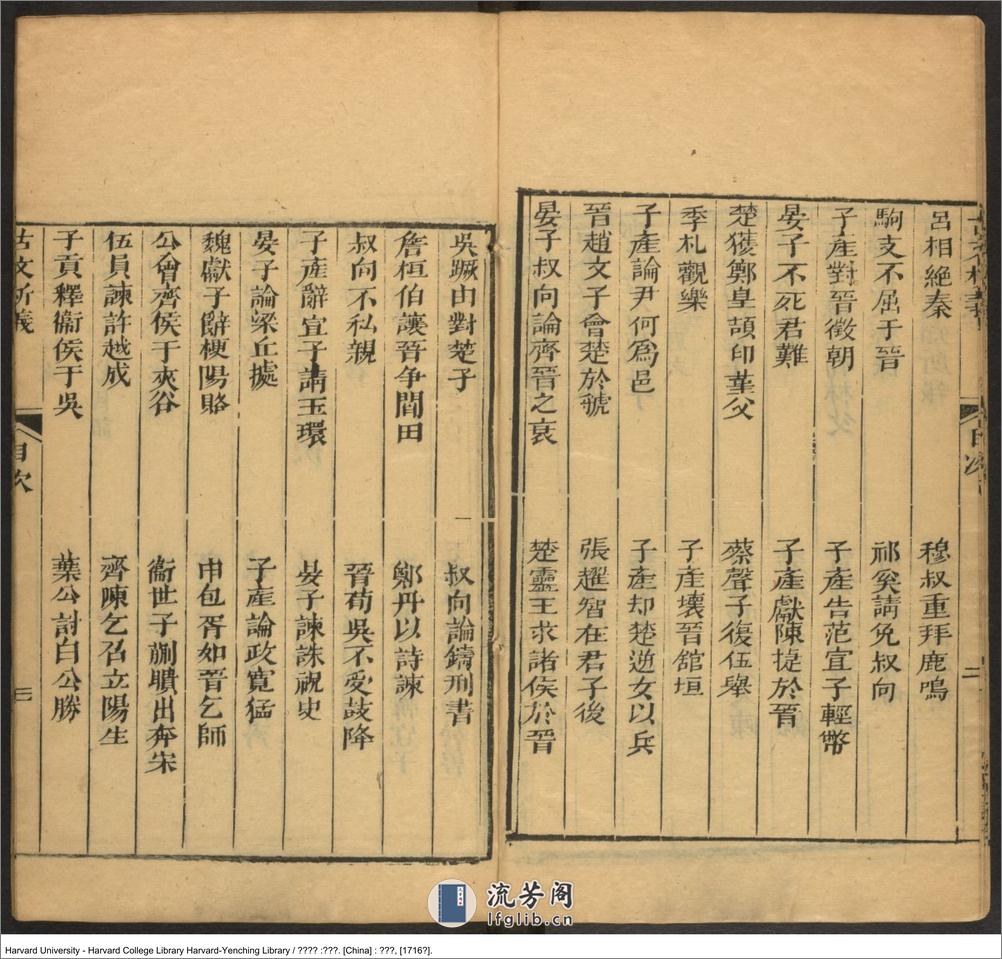 呂相絕秦 穆叔重拜鹿鳴
駒支不屈于晉 祁奚請免叔向
子產對晉徵朝 子產告范宣子輕幣
晏子不死君難 子產獻陳捷於晉
楚獲鄭皇頡印堇父 蔡聲子復伍舉
季札觀樂 子產壞晉舘垣
子產論尹何爲邑 子產却楚逆女以兵
晉趙文子會楚於虢 張趯智在君子後
晏子叔向論齊晉之衰 楚靈王求諸侯於晉
吳蹶由對楚子 叔向論鑄刑書
詹桓伯讓晉争閻田 鄭丹以詩諫
叔向不私親 晉荀吳不受鼓降
子產辭宣子請玉環 晏子諫誅祝史
晏子論梁丘據 子產論政寬猛
魏獻子辭梗陽賂 申包胥如晉乞師
公會齊侯于夾谷 衞世子蒯聵出奔宋
伍員諫許越成 齊陳乞召立陽生
子貢釋衞侯于吳 葉公討白公勝
古文析義 目次 三
流芳阁
lfglib.cn
Harvard University - Harvard College Library Harvard-Yenching Library / ???? :???. [China] : ???, [1716?].